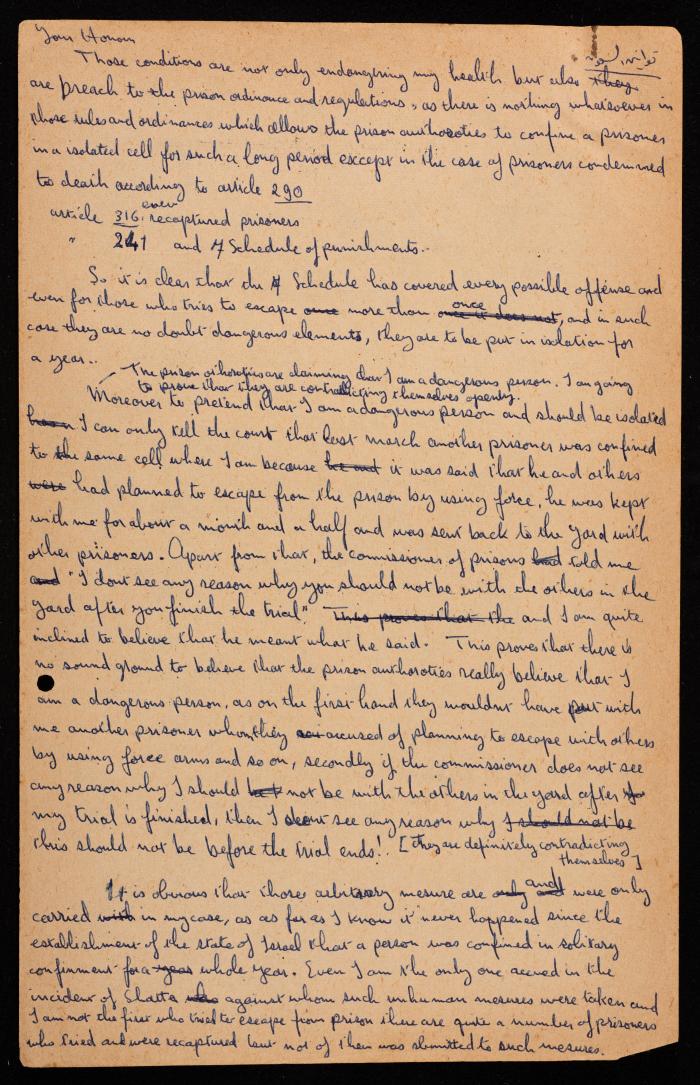 Your Honour
Those conditions are not only endangering my health but also they
are preach to the prison ordinance and regulations, as there is nothing whatsoever in
those rules and ordinances which allows the prison authoroties to confine a prisoner
in a isolated cell for such a long period except in the case of prisoners condemned
to death according to article 290
article 316. even recaptured prisoners
" 241 and 7 Schedule of punishments..
So it is clear that the 7 Schedule has covered every possible offense and
even for those who tries to escape once more than once it does not, once and in such
case they are no doubt dangerous elements, they are to be put in isolation for
a year..
The prison othoroties are claiming that I am a dangerous person. I am going
to prove that they are contradicting themselves openly.
Moreover to pretend that I am a dangerous person and should be isolated
I can only tell the court that last march another prisoner was confined
to the same cell where I am because he and it was said that he and others
were had planned to escape from the prison by using force, he was kept
with me for about a month and a half and was sent back to the yard with
other prisoners. Apart from that, the commissioner of prisons had told me
and "I dont see any reason why you should not be with the others in the
yard after you finish the trial". This proves that the and I am quite
inclined to believe that he meant what he said. This proves that there is
no sound ground to believe that the prison authoroties really believe that I
am a dangerous person, as on the first hand they wouldnt have put with
me another prisoner whom they accused of planning to escape with others
by using force arms and so on, secondly if the commissioner does not see
any reason why I should not be with the others in the yard after
my trial is finished, then I dont see any reason why I should not be
this should not be before the trial ends!. [they are definitely contradicting
themselves]
It is obvious that those arbitrary mesure are only and were only
carried with in my case, as as far as I know it never happened since the
establishment of the state of Israel that a person was confined in solitary
confinment for a year whole year. Even I am the only one accused in the
incident of Shatta who against whom such unhuman mesures were taken and
I am not the first who tried to escape from prison there are quite a number of prisoners
who tried and were recaptured but not of them was submitted to such mesures.